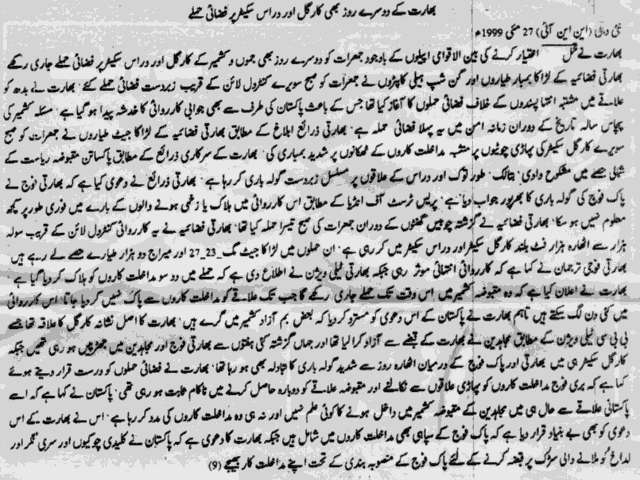 بھارت کے دوسرے روز بھی کارگل اور دراس سیکٹر پر فضائی حملے
نئی دہلی (این این آئی) 27 مئی 1999ء
بھارت نے تحمل اختیار کرنے کی بین الاقوامی اپیلوں کے باوجود جمعرات کو دوسرے روز بھی جموں و کشمیر کے کارگل اور دراس سیکٹر میں فضائی حملے جاری رکھے
بھارتی فضائیہ کے لڑاکا بمبار طیاروں اور گن شپ ہیلی کاپٹروں نے جمعرات کو صبح سویرے کنٹرول لائن کے قریب زبردست فضائی حملے کئے' بھارت نے بدھ کو
علاقے میں مشتبہ انتہا پسندوں کے خلاف فضائی حملوں کا آغاز کیا تھا جس کے باعث پاکستان کی طرف سے بھی جوابی کارروائی کا خدشہ پیدا ہو گیا ہے' مسئلہ کشمیر کی
پچاس سالہ تاریخ کے دوران زمانہ امن میں یہ پہلا فضائی حملہ ہے' بھارتی ذرائع ابلاغ کے مطابق بھارتی فضائیہ کے لڑاکا جیٹ طیاروں نے جمعرات کو صبح
سویرے کارگل سیکٹر کی پہاڑی چوٹیوں پر مشتبہ مداخلت کاروں کے ٹھکانوں پر شدید بمباری کی' بھارت کے سرکاری ذرائع کے مطابق پاکستان مقبوضہ ریاست کے
شالی حصے میں مشکوہ وادی' بٹالک' طور توک اور دراس کے علاقوں پر مسلسل زبردست گولہ باری کر رہا ہے' بھارتی ذرائع نے دعوی کیا ہے کہ بھارتی فوج نے
پاک فوج کی گولہ باری کا بھرپور جواب دیا ہے' پریس ٹرسٹ آف انڈیا کے مطابق اس کارروائی میں ہلاک یا زخمی ہونے والوں کے بارے میں فوری طور پر کچھ
معلوم نہیں ہو سکا' بھارتی فضائیہ نے گزشتہ چوبیس گھنٹوں کے دوران جمعرات کی صبح تیسرا حملہ کیا تھا' بھارتی فضائیہ نے یہ کارروائی کنٹرول لائن کے قریب سولہ
ہزار سے اٹھارہ ہزار فٹ بلند کارگل سیکٹر اور دراس سیکٹر میں کر رہی ہے' ان حملوں میں لڑاکا جیٹ مگ_23_27 اور میراج دو ہزار طیارے حصے لے رہے ہیں
بھارتی فوجی ترجمان نے کہا ہے کہ کارروائی انتہائی موثر رہی جبکہ بھارتی ٹیلی ویژن نے اطلاع دی ہے کہ حملے میں دو سو مداخلت کاروں کو ہلاک کر دیا گیا ہے
بھارت نے اعلان کیا ہے کہ وہ مقبوضہ کشمیر میں اس وقت تک حملے جاری رکھے گا جب تک علاقے کو مداخلت کاروں سے پاک نہیں کر دیا جاتا' اس کارروائی
میں کئی دن لگ سکتے ہیں تاہم بھارت نے پاکستان کے اس دعوی کو مسترد کر دیا کہ بعض بم آزاد کشمیر میں گرے ہیں' بھارت کا اصل نشانہ کارگل کا علاقہ تھا جسے
بی بی سی ٹیلی ویژن کے مطابق مجاہدین نے بھارت کے قبضے سے آزاد کرا لیا تھا اور جہاں گزشتہ کئی ہفتوں سے بھارتی فوج اور مجاہدین میں جھڑپیں ہو رہی تھیں جبکہ
کارگل سیکٹر ہی میں بھارتی اور پاک فوج کے درمیان اٹھارہ روز سے شدید گولہ باری کا تبادلہ بھی ہو رہا تھا' بھارت نے فضائی حملوں کو درست قرار دیتے ہوئے
کہا ہے کہ بری فوج مداخلت کاروں کو پہاڑی علاقوں سے نکالنے اور مقبوضہ علاقے کو دوبارہ حاصل کرنے میں ناکام ثابت ہو رہی تھی' پاکستان نے کہا ہے کہ اسے
پاکستانی علاقے سے حال ہی میں مجاہدین کے مقبوضہ کشمیر میں داخل ہونے کا کوئی علم نہیں اور نہ ہی وہ مداخلت کاروں کی مدد کر رہا ہے' اس نے بھارت کے اس
دعوی کو بھی بے بنیاد قرار دیا ہے کہ پاک فوج کے سپاہی بھی مداخلت کاروں میں شامل ہیں جبکہ بھارت کا دعوی ہے کہ پاکستان نے کلیدی چوکیوں اور سری نگر اور
لداخ کو ملانے والی سڑک پر قبضہ کرنے کے لئے پاک فوج کے منصوبہ بندی کے تحت اپنے مداخلت کار بھیجے (9)